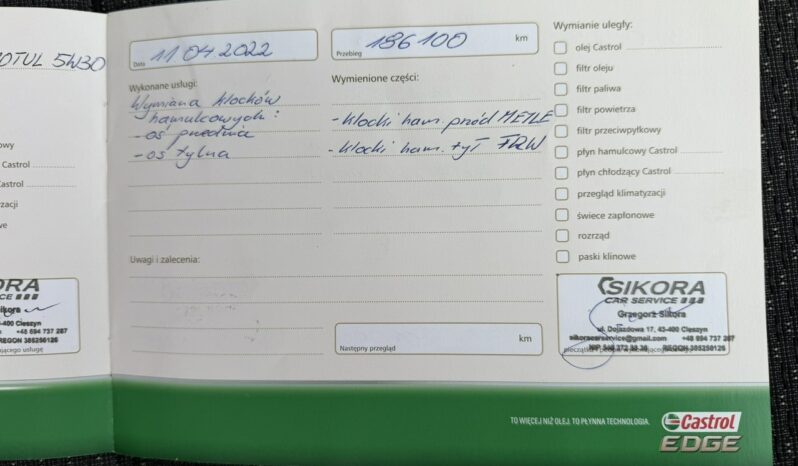 OTUL 5W30
owy
Castrol
astrol
zacji
we
KORA
ICE
ikora
3-400 Cieszyn
+48 694 737 287
REGON 385258126
ającego usługę
Data 11 04 2022
Przebieg 186 100 km
Wykonane usługi:
Wymiana klocków
hamulcowych:
- oś przednia
- oś tylna
Uwagi i zalecenia:
Wymienione części:
- klocki ham. przód MEYLE
- klocki ham. tył TRW
Następny przegląd km
Wymianie uległy:
olej Castrol
filtr oleju
filtr paliwa
filtr powietrza
filtr przeciwpyłkowy
płyn hamulcowy Castrol
płyn chłodzący Castrol
przegląd klimatyzacji
świece zapłonowe
rozrząd
paski klinowe
SIKORA
CAR SERVICE
Grzegorz Sikora
ul. Dojazdowa 17, 43-400 Cieszyn
sikoracarservice@gmail.com +48 694 737 287
REGON 385258126
TO WIĘCEJ NIŻ OLEJ. TO PŁYNNA TECHNOLOGIA.
Castrol
EDGE